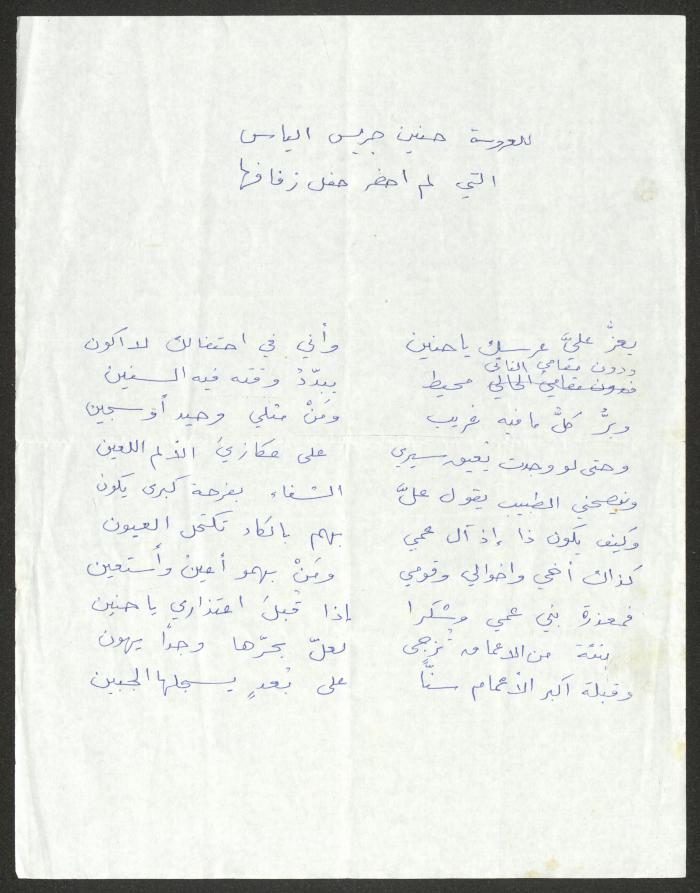 للعروسة حنين جريس الياس
التي لم احضر حفل زفافها
يعزُّ عليَّ عرسك يا حنين وأني في احتفالك لا اكون
ودون مقامي النائي
فدون مقامي الحالي محيط يبدّدُ وقته فيه السنين
وبرُّ كلُّ ما فيه غريب ومَنْ مثلي وحيد أو سجين
وحتى لو وجدت يُعيق سيري على عكازيَ الألم اللعين
وينصحني الطبيب يقول علَّ الشفاء بفرحة كبرى يكون
وكيف يكون ذا إذ آل عمي بهم بالكاد تكتحل العيون
كذاك أخي واخوالي وقومي ومَنْ بهمو أُعين وأستعين
فمعذرة بني عمي وشكرا إذا قُبلَ اعتذاري يا حنين
من الاعماق تُزجى لعلّ بحرّها وجداً يهون
وقبلة اكبر الأعمام سنّاً على بُعدٍ يسجلها الجبين